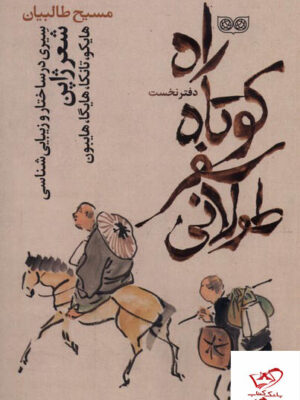 مسیح طالبیان
سیری در ساختار و زیبایی‌شناسی
شعر ژاپن
هایکو، تانکا، هایگا، هایبون
دفتر نخست
راه
کوتاه
سفر
طولانی
بانک کتاب